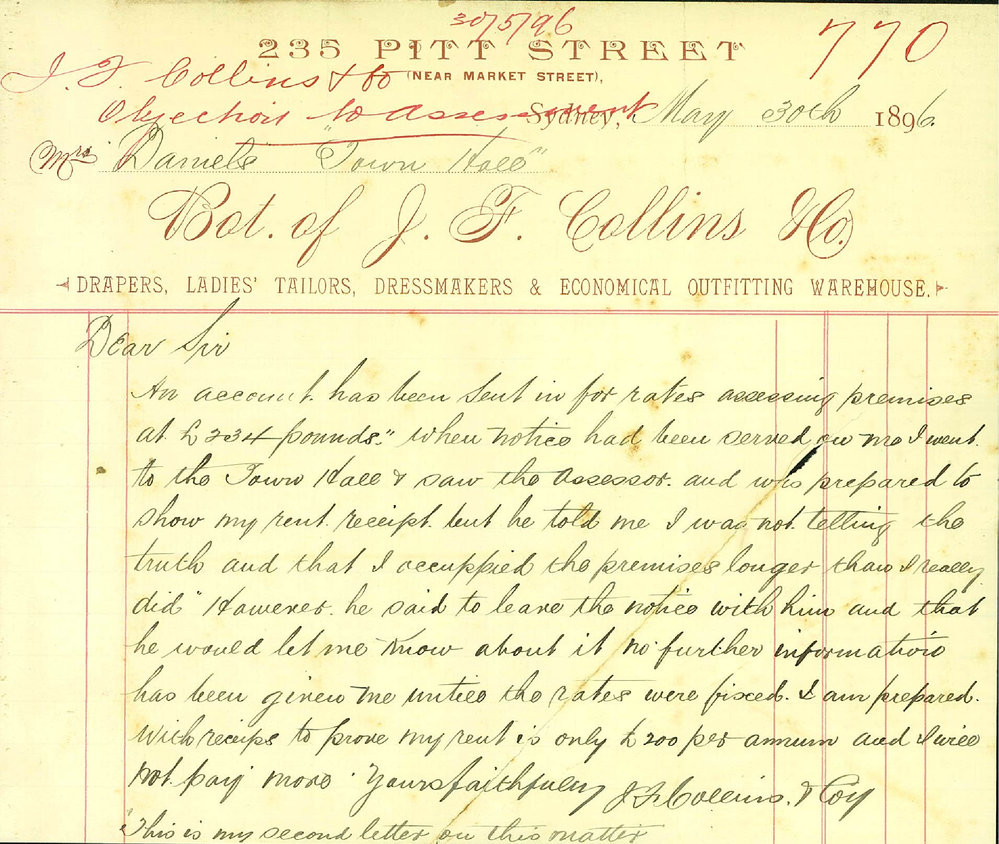 30/5/96
770
235 PITT STREET
(NEAR MARKET STREET),
J. F. Collins & Co
Objection to assessment
Sydney, May 30th 1896.
Mrs Daniels "Town Hall"
Bot. of J. F. Collins & Co.
DRAPERS, LADIES' TAILORS, DRESSMAKERS & ECONOMICAL OUTFITTING WAREHOUSE.
Dear Sir
An account has been sent in for rates assessing premises
at £234 pounds." When notice had been served on me I went
to the Town Hall & saw the Assessor. and was prepared to
show my rent receipt but he told me I was not telling the
truth and that I occuppied the premises longer than I really
did" However. he said to leave the notice with him and that
he would let me know about it no further information
has been given me untill the rates were fixed. I am prepared.
With receips to prove my rent is only £200 per annum and I will
not pay more. Yours faithfully J. F. Collins. & Coy
"This is my second letter on this matter